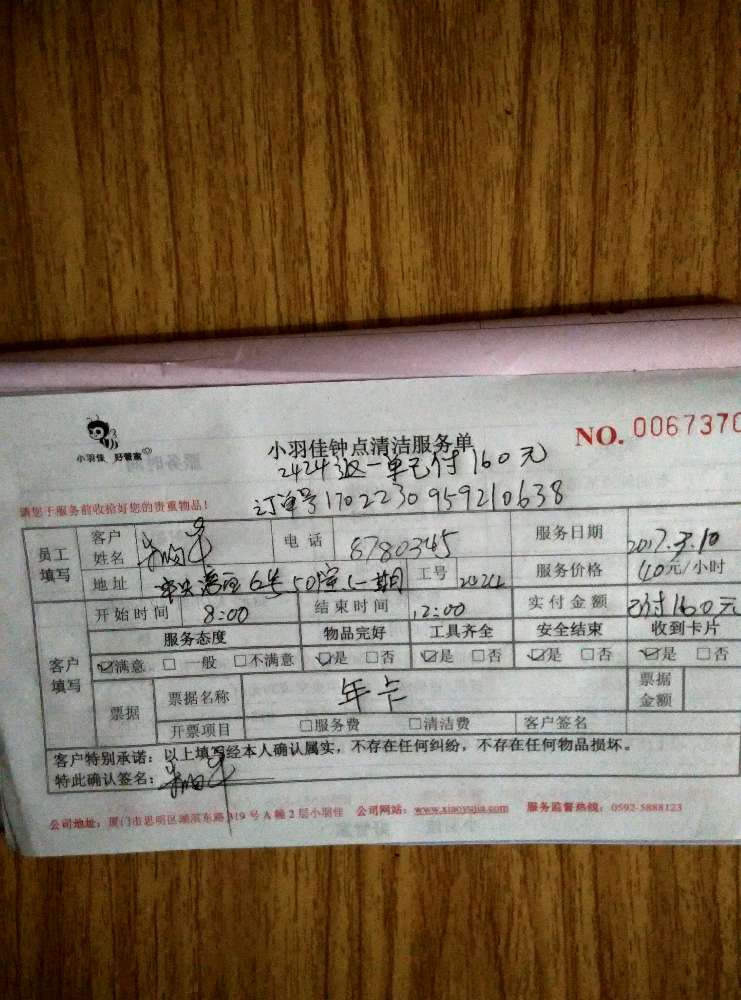 小羽佳 好管家
小羽佳钟点清洁服务单
NO. 0067370
2424返一单已付160元
请您于服务前收拾好您的贵重物品!
订单号1702230959210638
员工填写
客户姓名 电话 8780345 服务日期 2017.3.10
地址 6号 501室(一期) 工号 2424 服务价格 40元/小时
客户填写
开始时间 8:00 结束时间 12:00 实付金额 已付160元
服务态度 物品完好 工具齐全 安全结束 收到卡片
☑满意 □一般 □不满意 ☑是 □否 ☑是 □否 ☑是 □否 ☑是 □否
票据 票据名称 年卡 票据金额
开票项目 □服务费 □清洁费 客户签名
客户特别承诺:以上填写经本人确认属实,不存在任何纠纷,不存在任何物品损坏。
特此确认签名:
公司地址:厦门市思明区湖滨东路319号A幢2层小羽佳 公司网站:www.xiaoyujia.com 服务监督热线:0592-5888123